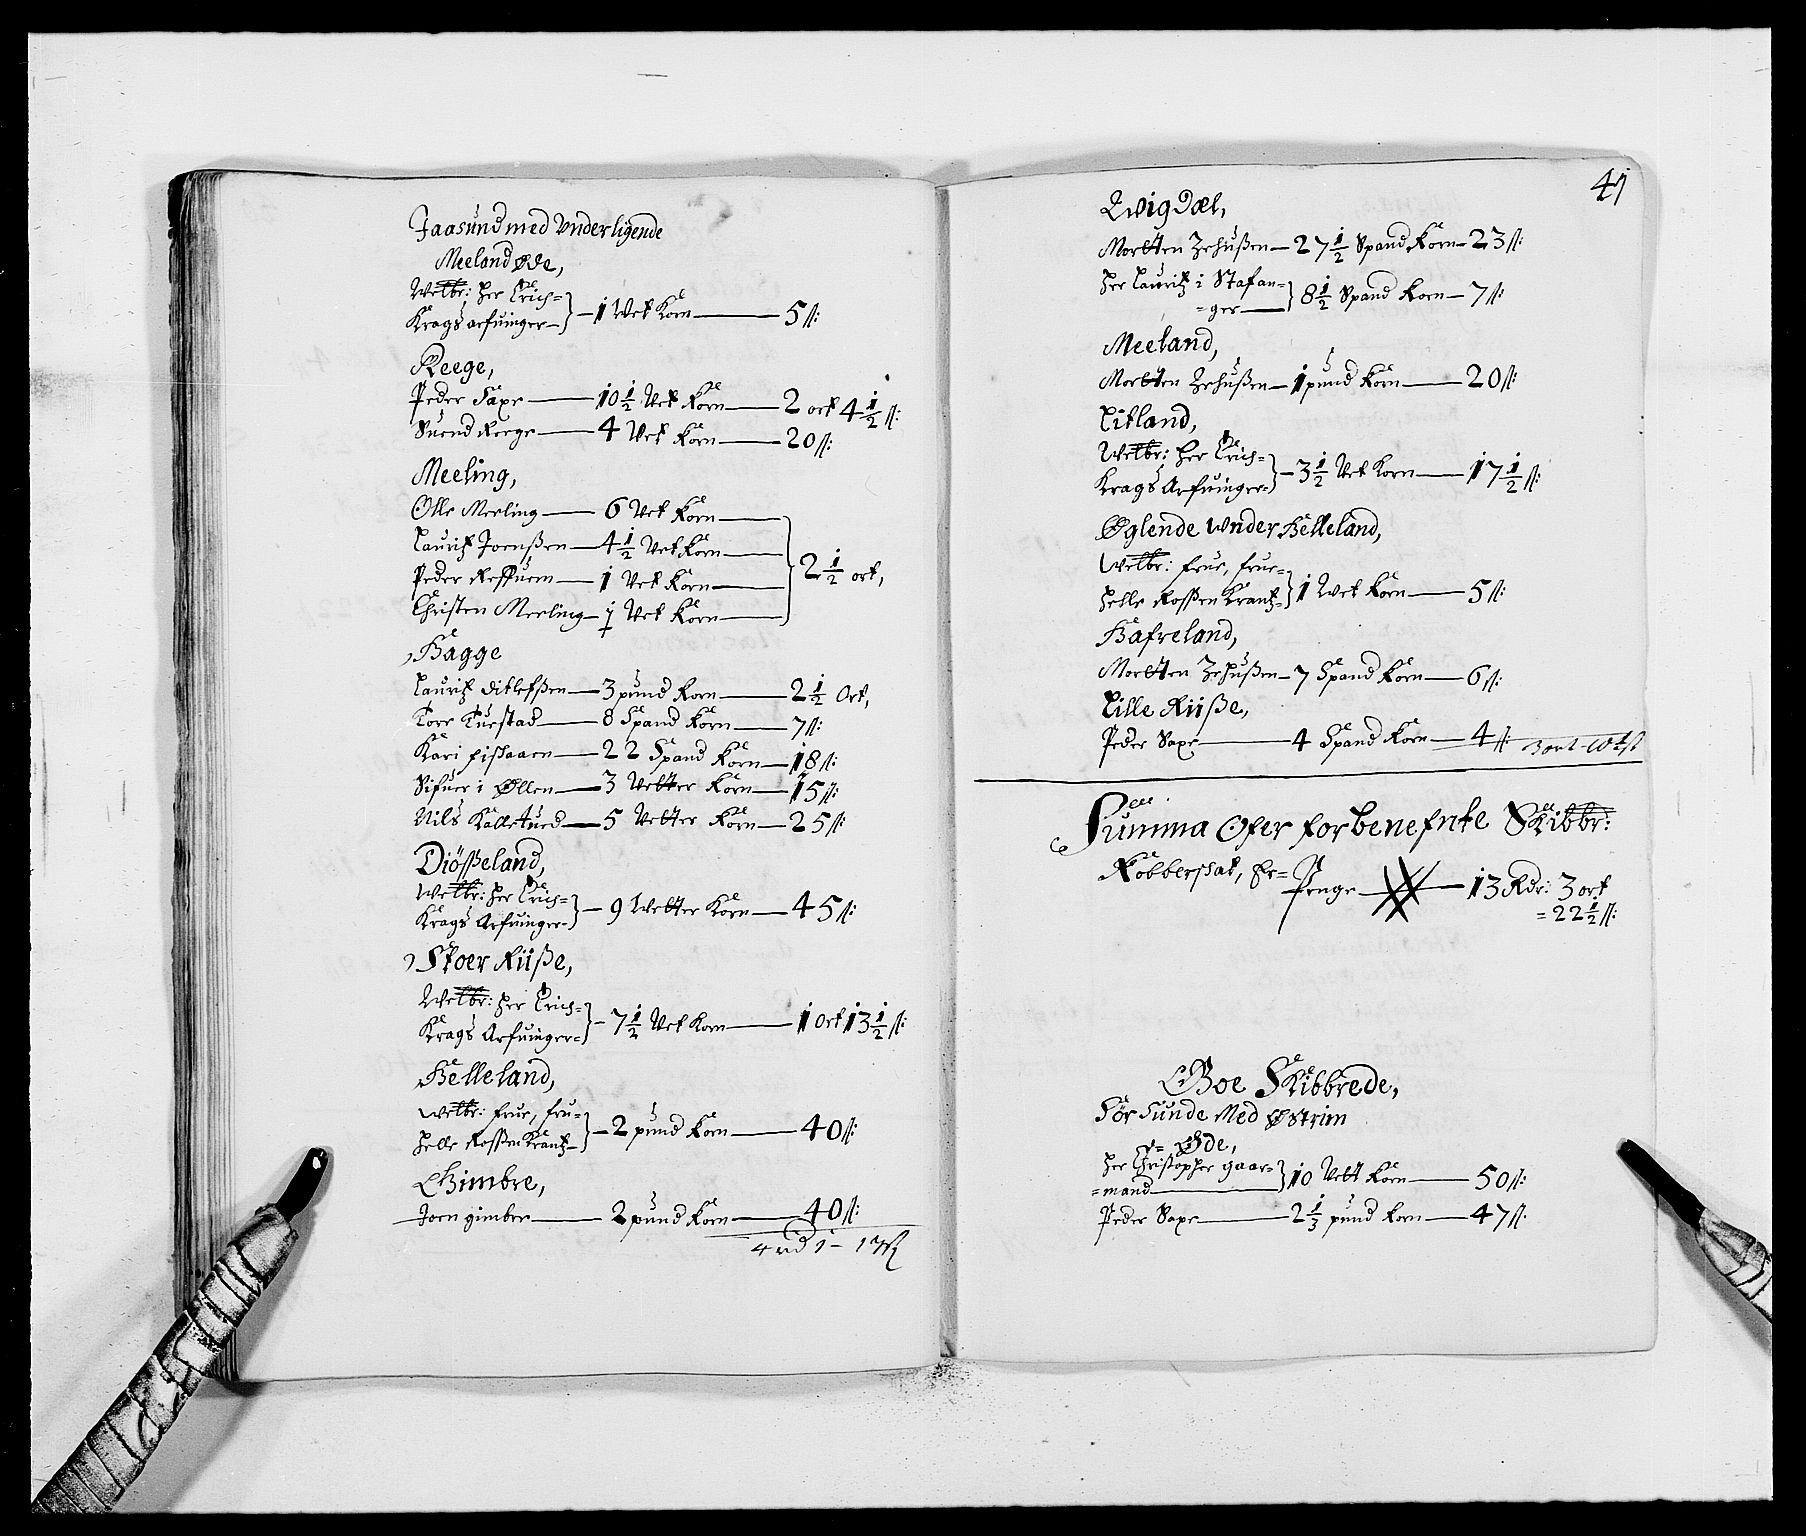 Jaasund med Vnderligende
Meeland Øde,
Welbr: Her Erich=
Krags arfuinger — 1 Vet Korn — 5 ß:
Reege,
Peder Saxe — 10 1/2 Vet Korn — 2 ort 4 1/2 ß:
Suend Reege — 4 Vet Korn — 20 ß:
Meeling,
Olle Meeling — 6 Vet Korn —
Lauritz Joenßen — 4 1/2 Vet Korn —
Peder — 1 Vet Korn — 2 1/2 ort,
Christen Meeling — 1 Vet Korn —
Hagge
Lauritz Ditlefßen — 3 pund Korn — 2 1/2 Ort,
Tore Tuestad — 8 Spand Korn — 7 ß:
Kari — 22 Spand Korn — 18 ß:
Sifuer i Øllen — 3 Vetter Korn — 15 ß:
Nils Kalletued — 5 Vetter Korn — 25 ß:
Diößeland,
Welbr: Her Erich=
Krags Arfuinger= — 9 Wetter Korn — 45 ß:
Stoer Riiße,
Welbr: Her Erich=
Krags Arfuinger= — 7 1/2 Vet Korn — 1 Ort 13 1/2 ß:
Helleland,
Welbr: frue, fru=
Helle Rossen Krantz — 2 pund Korn — 40 ß:
Gimbre,
Joen gimbre — 2 pund Korn — 40 ß:
4 rd 1 - 17 ß
41
Qvigdæl,
Mortten Zehußen — 27 1/2 Spand Korn — 23 ß:
Her Lauritz i Stafan=
=ger — 8 1/2 Spand Korn — 7 ß:
Meeland,
Mortten Zehußen — 1 pund Korn — 20 ß:
Litland,
Welbr: Her Erich=
Krags Arfuinger= — 3 1/2 Vet Korn — 17 1/2 ß:
Øglende Wnder Helleland,
Welbr: frue, frue=
Helle Rossen Krantz= — 1 Wet Korn — 5 ß:
Hafreland,
Mortten Zehußen — 7 Spand Korn — 6 ß:
Lille Riiße,
Peder Saxe — 4 Spand Korn — 4 ß: 3 ort
Summa Ofer forbenefnte Skibbr:
Kobberskat, Er=
Penge — 13 Rdr: 3 ort
=22 1/2 ß:
Goe Skibbrede,
Sör Sunde Med Østrim
Øde,
Her Christopher gaar=
=mand — 10 Vett Korn — 50 ß:
Peder Saxe — 2 1/3 pund Korn — 47 ß: